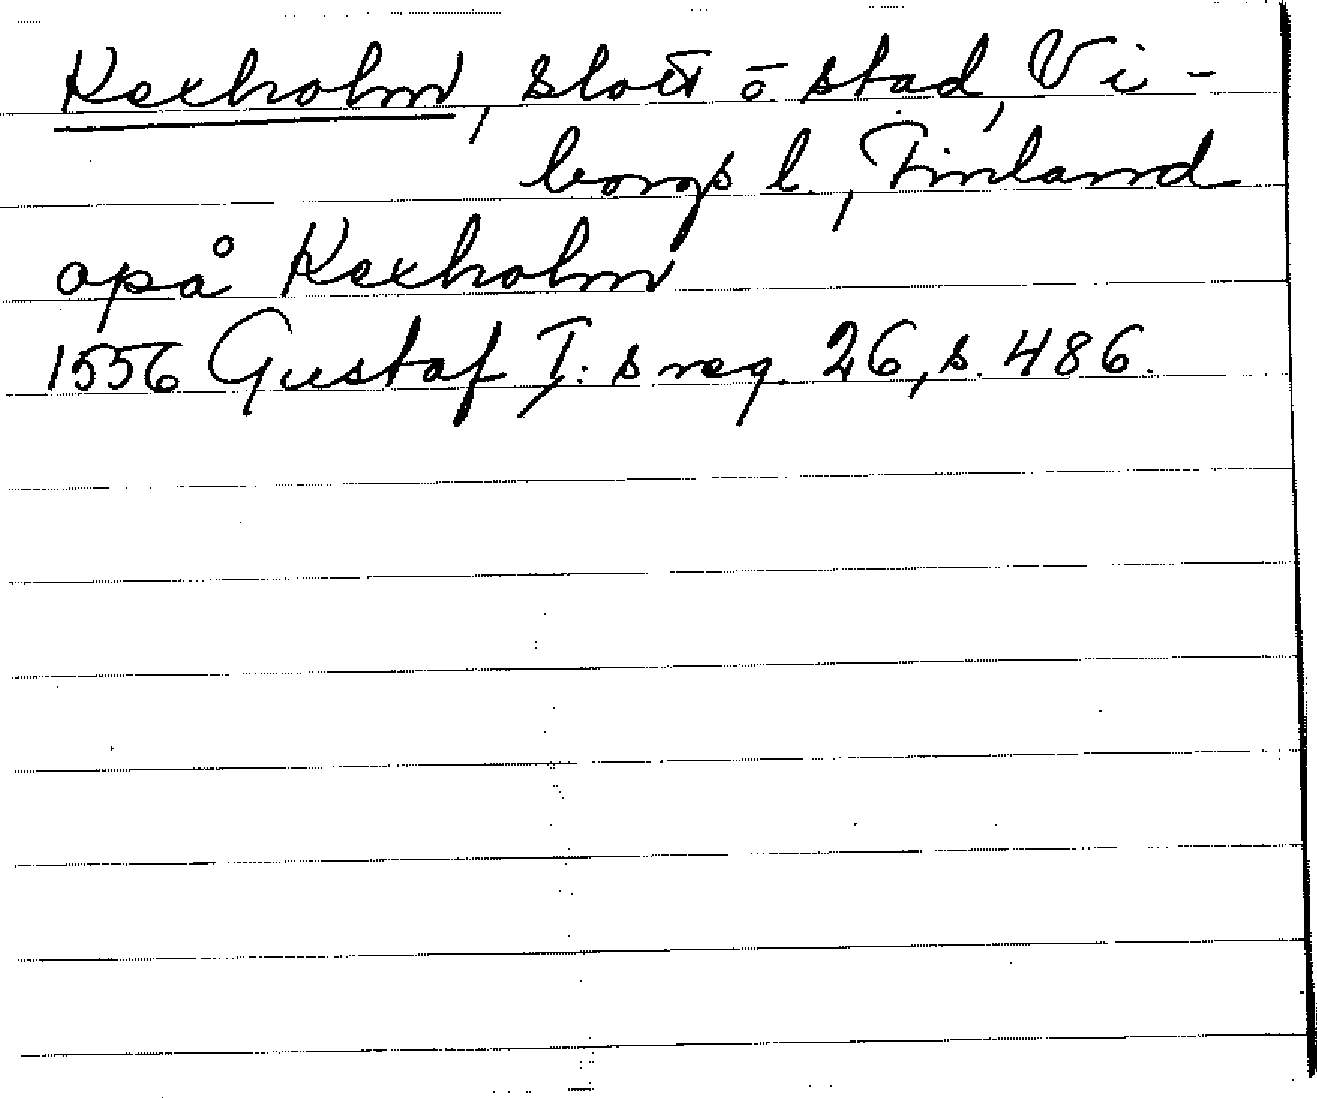 Kexholm, slott o stad, Vi-
borgs l., Finland
opå Kexholm
1556 Gustaf I:s reg. 26, s. 486.